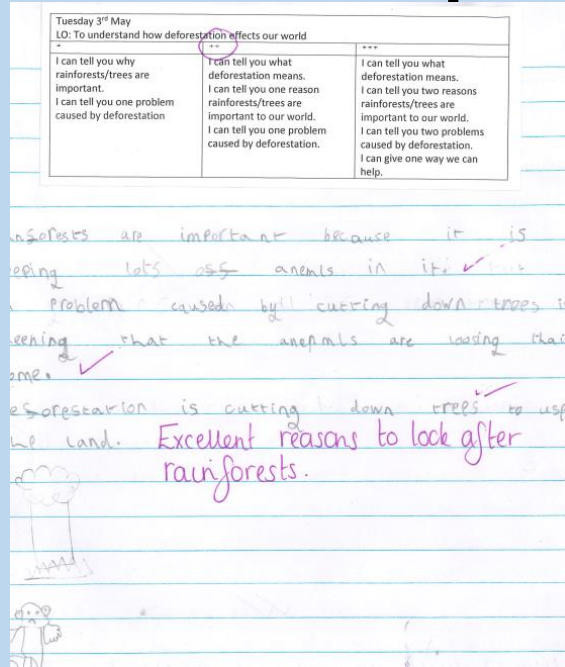 Tuesday 3rd May
LO: To understand how deforestation effects our world
*
I can tell you why
rainforests/trees are
important.
I can tell you one problem
caused by deforestation
**
I can tell you what
deforestation means.
I can tell you one reason
rainforests/trees are
important to our world.
I can tell you one problem
caused by deforestation.
***
I can tell you what
deforestation means.
I can tell you two reasons
rainforests/trees are
important to our world.
I can tell you two problems
caused by deforestation.
I can give one way we can
help.
nforests are important because it is
eeping lots off anemls in it.
problem caused by cutting down trees i
eening that the anepmls are loosing thai
ome.
eforestation is cutting down trees to use
he land.
Excellent reasons to look after
rainforests.